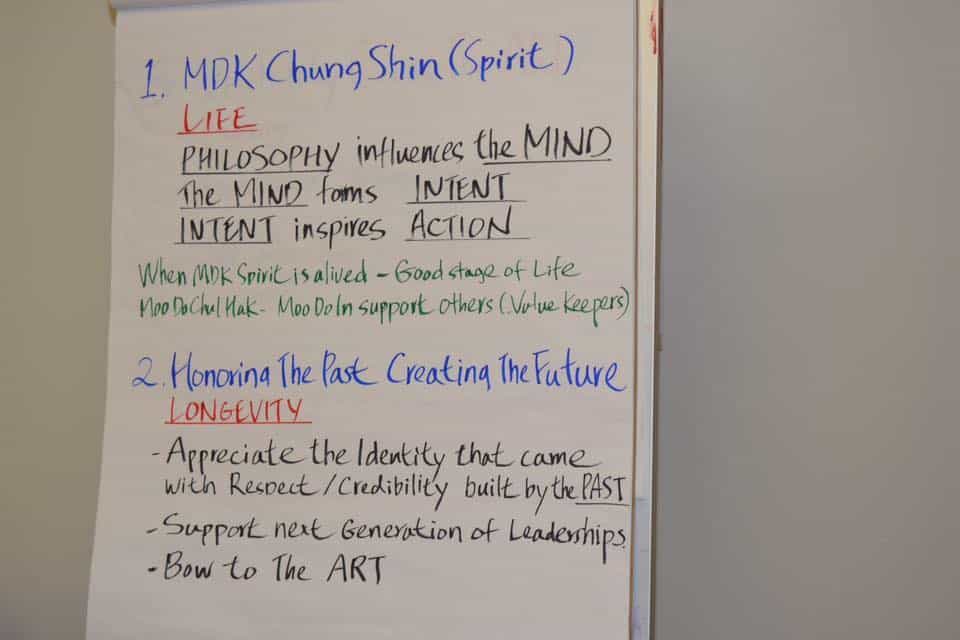 1. MDK Chung Shin (Spirit)
LIFE
PHILOSOPHY influences the MIND
The MIND forms INTENT
INTENT inspires ACTION
When MDK Spirit is alived - Good stage of Life
Moo Do Chul Hak - Moo Do In support others (Value Keepers)
2. Honoring The Past Creating The Future
LONGEVITY
- Appreciate the Identity that came
with Respect / Credibility built by the PAST
- Support next Generation of Leaderships.
- Bow to The ART